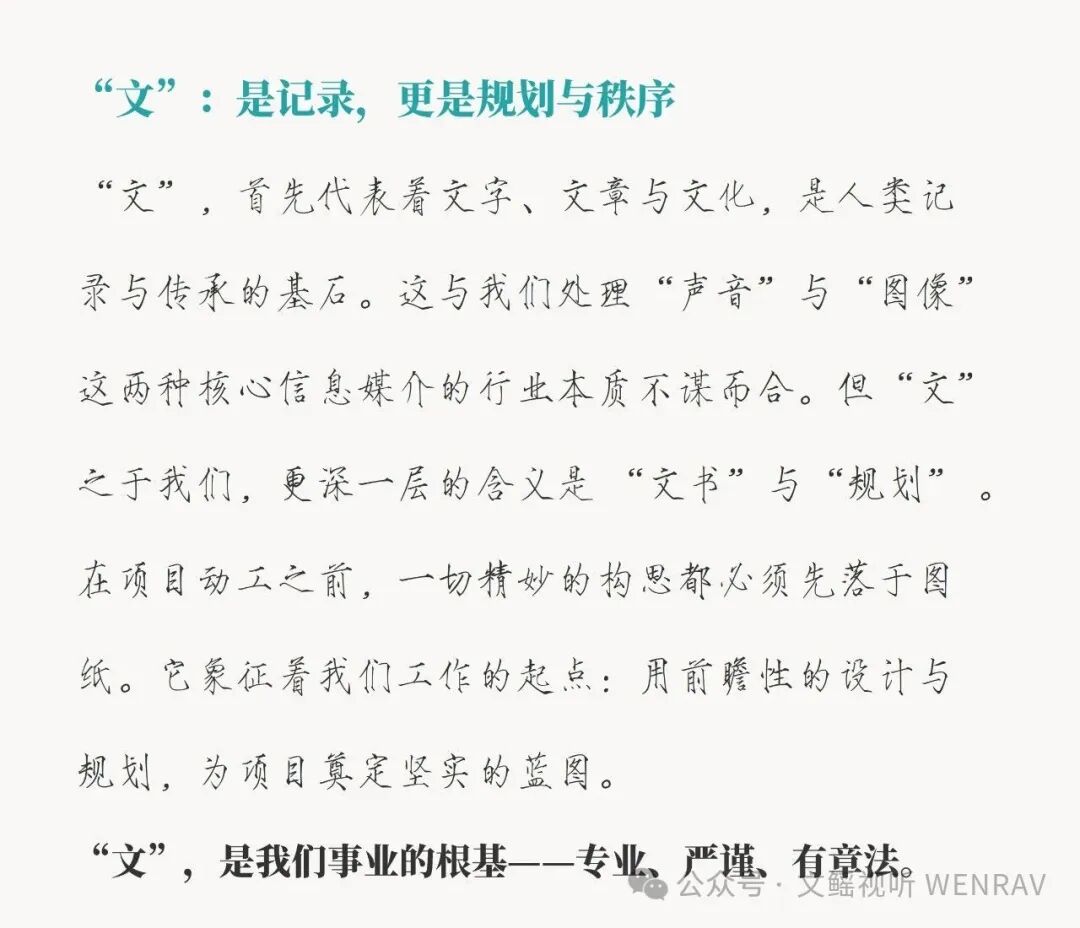 “文”：是记录，更是规划与秩序
“文”，首先代表着文字、文章与文化，是人类记
录与传承的基石。这与我们处理“声音”与“图像”
这两种核心信息媒介的行业本质不谋而合。但“文”
之于我们，更深一层的含义是“文书”与“规划”。
在项目动工之前，一切精妙的构思都必须先落于图
纸。它象征着我们工作的起点：用前瞻性的设计与
规划，为项目奠定坚实的蓝图。
“文”，是我们事业的根基——专业、严谨、有章法。
公众号·文鳐视听 WENRAV